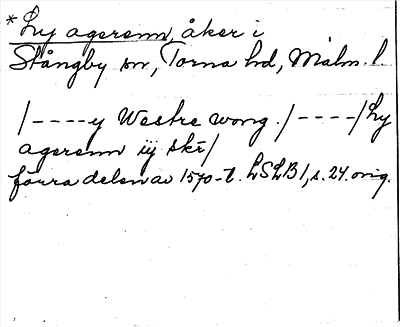 * Ly agerenn, åker i
Stångby sn, Torna hd, Malm. l.
/----y Westre wong./----/Ly
agerenn iij skr/
förra delen av 1570-t. LSLB1, s. 24. orig.